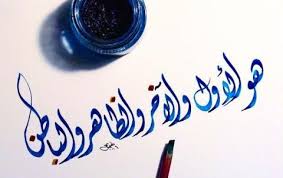 هو الأول والآخر والظاهر والباطن